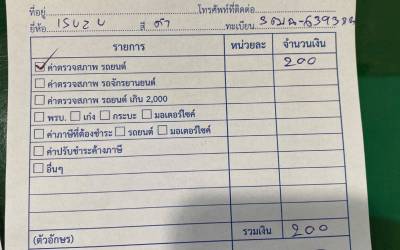 ที่อยู่ โทรศัพท์ที่ติดต่อ
ยี่ห้อ ISUZU สี ดำ ทะเบียน
รายการ หน่วยละ จำนวนเงิน
ค่าตรวจสภาพ รถยนต์ 200
ค่าตรวจสภาพ รถจักรยานยนต์
ค่าตรวจสภาพ รถยนต์ เกิน 2,000
พรบ. เก๋ง กระบะ มอเตอร์ไซค์
ค่าภาษีที่ต้องชำระ รถยนต์ มอเตอร์ไซค์
ค่าปรับชำระค้างภาษี
อื่นๆ
(ตัวอักษร) รวมเงิน 200